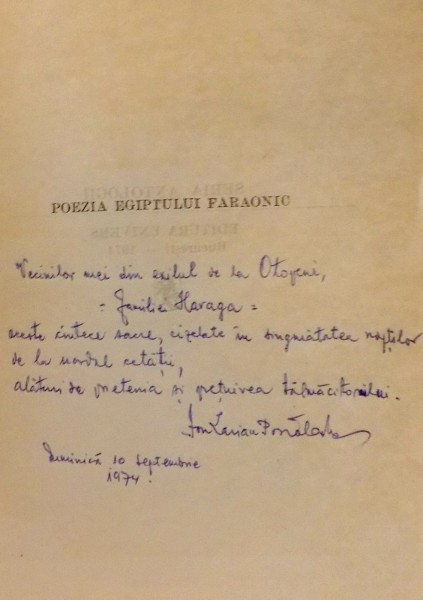 POEZIA EGIPTULUI FARAONIC
Vecinilor mei din exilul de la Otopeni,
- Familia Haraga =
aceste cîntece sacre, cizelate în singurătatea nopților
de la nordul cetății,
alături de prietenia și prețuirea tălmăcitorului.
Ion Larian Postolache
Duminică 10 septembrie
1974
SERIA ANTOLOGII
EDITURA UNIVERS
București — 1974